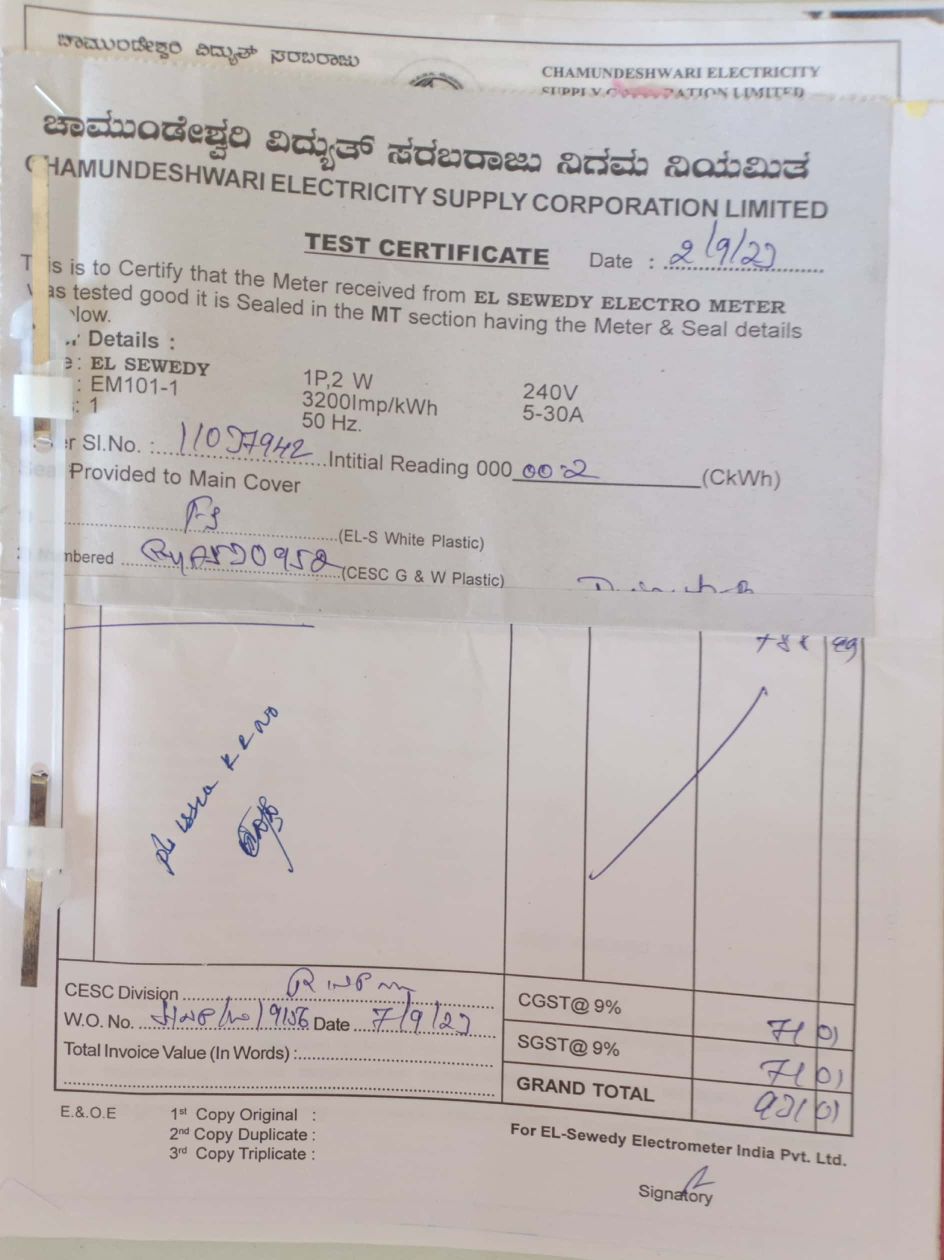 ಚಾಮುಂಡೇಶ್ವರಿ ವಿದ್ಯುತ್ ಸರಬರಾಜು
CHAMUNDESHWARI ELECTRICITY
SUPPLY LIMITED
ಚಾಮುಂಡೇಶ್ವರಿ ವಿದ್ಯುತ್ ಸರಬರಾಜು ನಿಗಮ ನಿಯಮಿತ
CHAMUNDESHWARI ELECTRICITY SUPPLY CORPORATION LIMITED
TEST CERTIFICATE Date : 2/9/23
is is to Certify that the Meter received from EL SEWEDY ELECTRO METER
as tested good it is Sealed in the MT section having the Meter & Seal details
low.
Details :
: EL SEWEDY 1P,2 W 240V
: EM101-1 3200Imp/kWh 5-30A
: 1 50 Hz.
er Sl.No. : 11057942 Intitial Reading 000 00 2 (CkWh)
Seal Provided to Main Cover
(EL-S White Plastic)
mbered (CESC G & W Plastic)
CESC Division
W.O. No. Date 7/9/23
Total Invoice Value (In Words) :
CGST@ 9% 71 01
SGST@ 9% 71 01
GRAND TOTAL 931 01
E.&.O.E 1st Copy Original :
2nd Copy Duplicate :
3rd Copy Triplicate :
For EL-Sewedy Electrometer India Pvt. Ltd.
Signatory